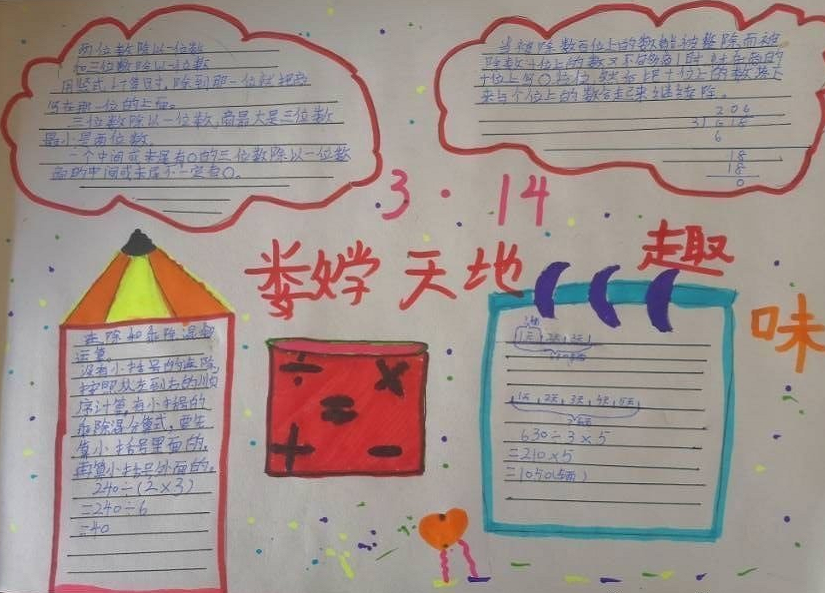 两位数除以一位数
和三位数除以一位数
用竖式计算时,除到那一位就把商
写在那一位的上面。
三位数除以一位数,商最大是三位数
最小是两位数,
一个中间或末尾有0的三位数除以一位数
商的中间或末尾不一定有0。
当被除数百位上的数能被整除而被
除数十位上的数又不够商1时
十位上写0占位
来与个位上的数合起来继续除。
206
3 618
6
18
18
0
3·14
天地
趣
味
连除和乘除混合
运算
没有小括号的连除,
按照从左到右的顺
序计算,有小括号的
乘除混合算式,要先
算小括号里面的,
再算小括号外面的。
240÷(2×3)
=240÷6
=40
÷ ×
=
+ −
1天 2天 3天
1天 2天 3天 4天 5天
630÷3×5
=210×5